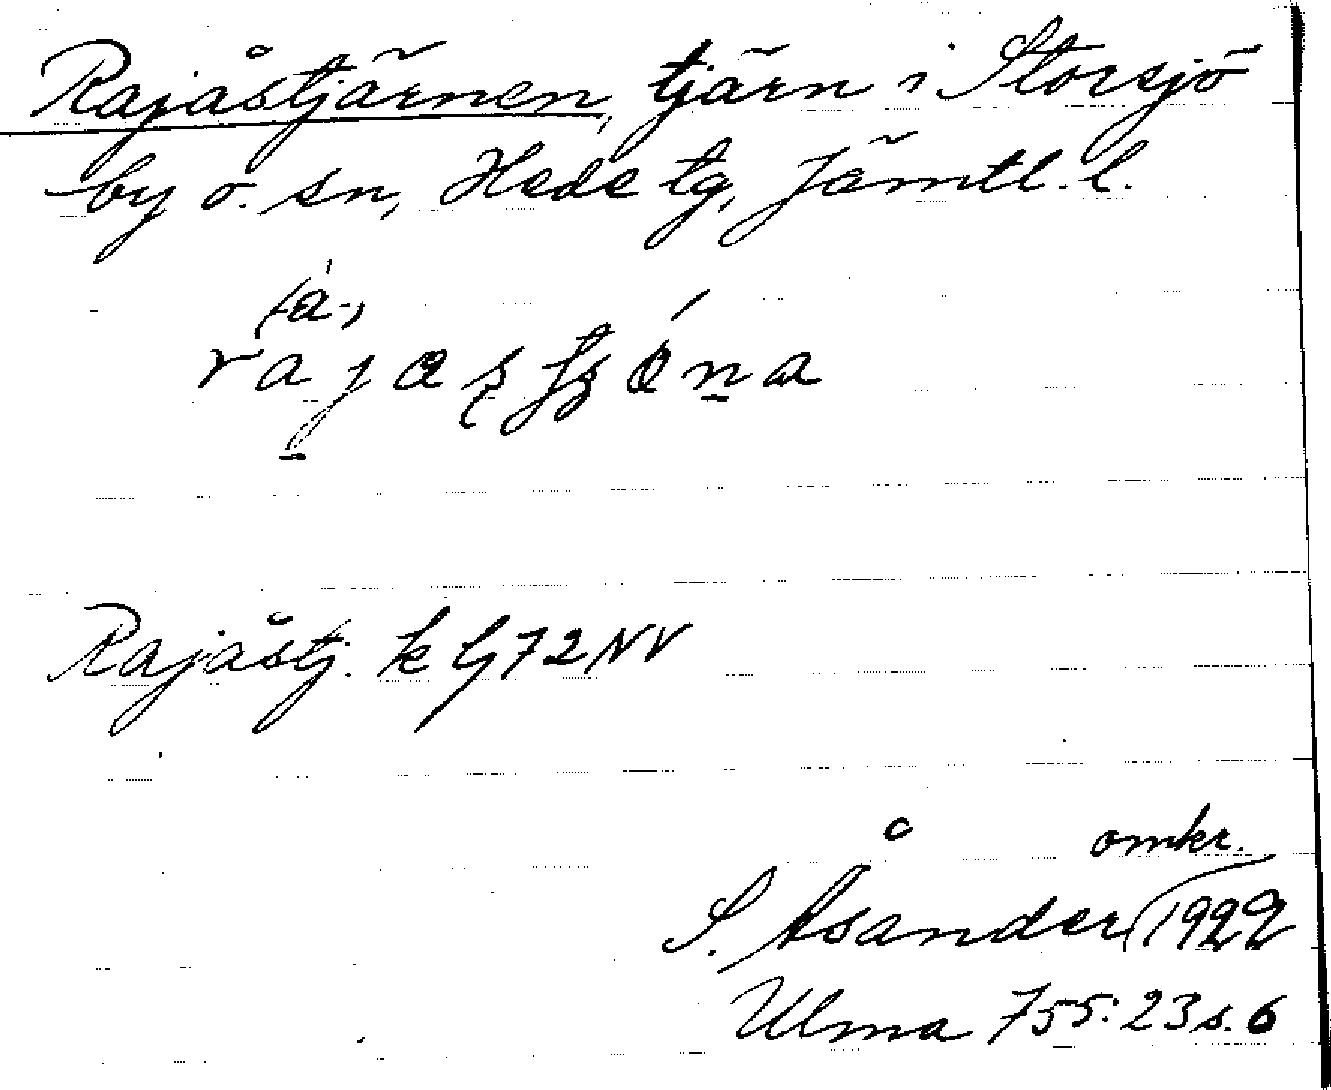 Rajåstjärnen, tjärn i Storsjö
by o. sn, Hede tg, Jämtl. l.
Rajåstj. k G72NV
omkr.
S. Åsander 1922
Ulma 755:23 s. 6